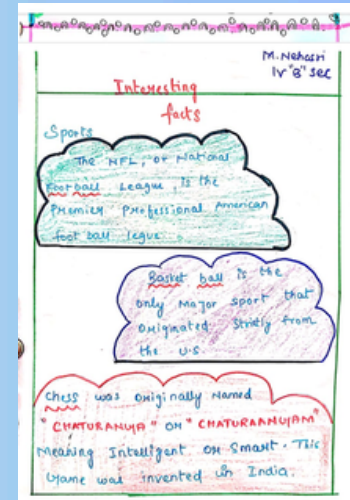 M. Nehasri
IV "B" sec
Interesting
facts
Sports
The NFL, or National
Football League, is the
Premier Professional American
foot ball legue.
Basket ball is the
only Major sport that
originated strictly from
the U.S
Chess was originally Named
"CHATURANGA" OR "CHATURAANGAM"
Meaning Intelligent OR Smart. This
Game was invented in India.